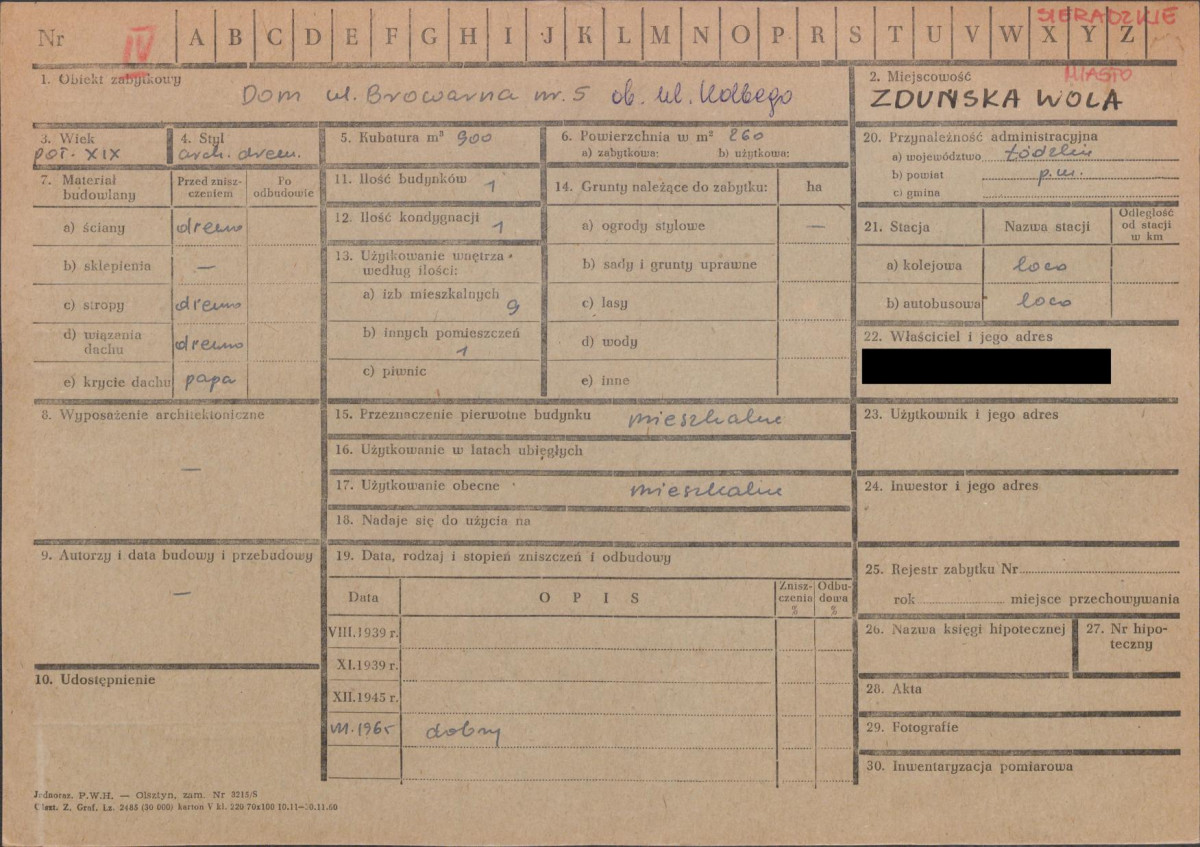 Nr IV A B C D E F G H I J K L M N O P R S T U V W X Y Z
SIERADZKIE
MIASTO
1. Obiekt zabytkowy
Dom ul. Browarna nr. 5 ob. ul. Kolbego
2. Miejscowość
ZDUŃSKA WOLA
3. Wiek
poł. XIX
4. Styl
arch. drewn.
5. Kubatura m³ 900
6. Powierzchnia w m² 260
a) zabytkowa: b) użytkowa:
7. Materiał budowlany
Przed zniszczeniem
Po odbudowie
a) ściany drewno
b) sklepienia —
c) stropy drewno
d) wiązania dachu drewno
e) krycie dachu papa
8. Wyposażenie architektoniczne
—
9. Autorzy i data budowy i przebudowy
—
10. Udostępnienie
11. Ilość budynków 1
12. Ilość kondygnacji 1
13. Użytkowanie wnętrza według ilości:
a) izb mieszkalnych 9
b) innych pomieszczeń 1
c) piwnic
14. Grunty należące do zabytku: ha
a) ogrody stylowe —
b) sady i grunty uprawne
c) lasy
d) wody
e) inne
15. Przeznaczenie pierwotne budynku mieszkalne
16. Użytkowanie w latach ubiegłych
17. Użytkowanie obecne mieszkalne
18. Nadaje się do użycia na
19. Data, rodzaj i stopień zniszczeń i odbudowy
Data OPIS Zniszczenia % Odbudowa %
VIII.1939 r.
XI.1939 r.
XII.1945 r.
VII.1965 dobry
20. Przynależność administracyjna
a) województwo Łódzkie
b) powiat p.m.
c) gmina
21. Stacja Nazwa stacji Odległość od stacji w km
a) kolejowa loco
b) autobusowa loco
22. Właściciel i jego adres
23. Użytkownik i jego adres
24. Inwestor i jego adres
25. Rejestr zabytku Nr
rok miejsce przechowywania
26. Nazwa księgi hipotecznej
27. Nr hipoteczny
28. Akta
29. Fotografie
30. Inwentaryzacja pomiarowa
Jednoraz. P.W.H. — Olsztyn, zam. Nr 3215/S
Olszt. Z. Graf. Lz. 2485 (30 000) karton V kl. 220 70x100 10.11—30.11.60